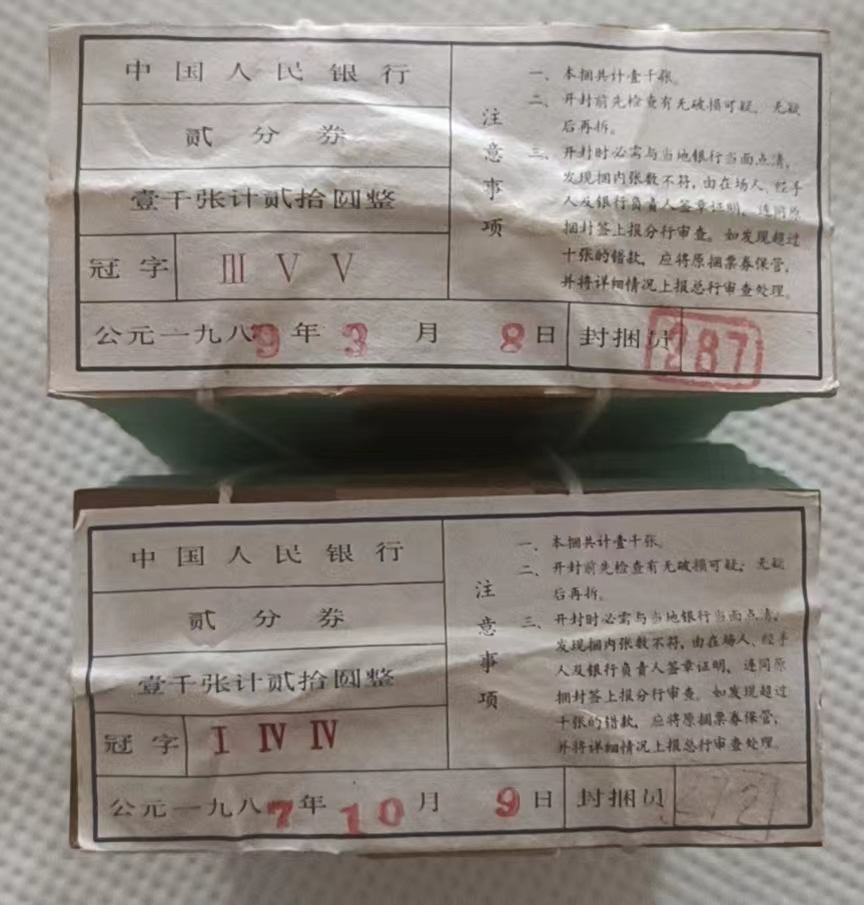 中国人民银行
贰分券
壹千张计贰拾圆整
冠字 Ⅲ Ⅴ Ⅴ
公元一九八9年3月8日 封捆员 287
注意事项
一、本捆共计壹千张。
二、开封前先检查有无破损可疑，无疑
后再拆。
三、开封时必需与当地银行当面点清，
发现捆内张数不符，由在场人、经手
人及银行负责人签章证明，连同原
捆封签上报分行审查。如发现超过
十张的错款，应将原捆票券保管，
并将详细情况上报总行审查处理。
中国人民银行
贰分券
壹千张计贰拾圆整
冠字 Ⅰ Ⅳ Ⅳ
公元一九八7年10月9日 封捆员
注意事项
一、本捆共计壹千张。
二、开封前先检查有无破损可疑；无疑
后再拆。
三、开封时必需与当地银行当面点清，
发现捆内张数不符，由在场人、经手
人及银行负责人签章证明，连同原
捆封签上报分行审查。如发现超过
十张的错款，应将原捆票券保管，
并将详细情况上报总行审查处理。